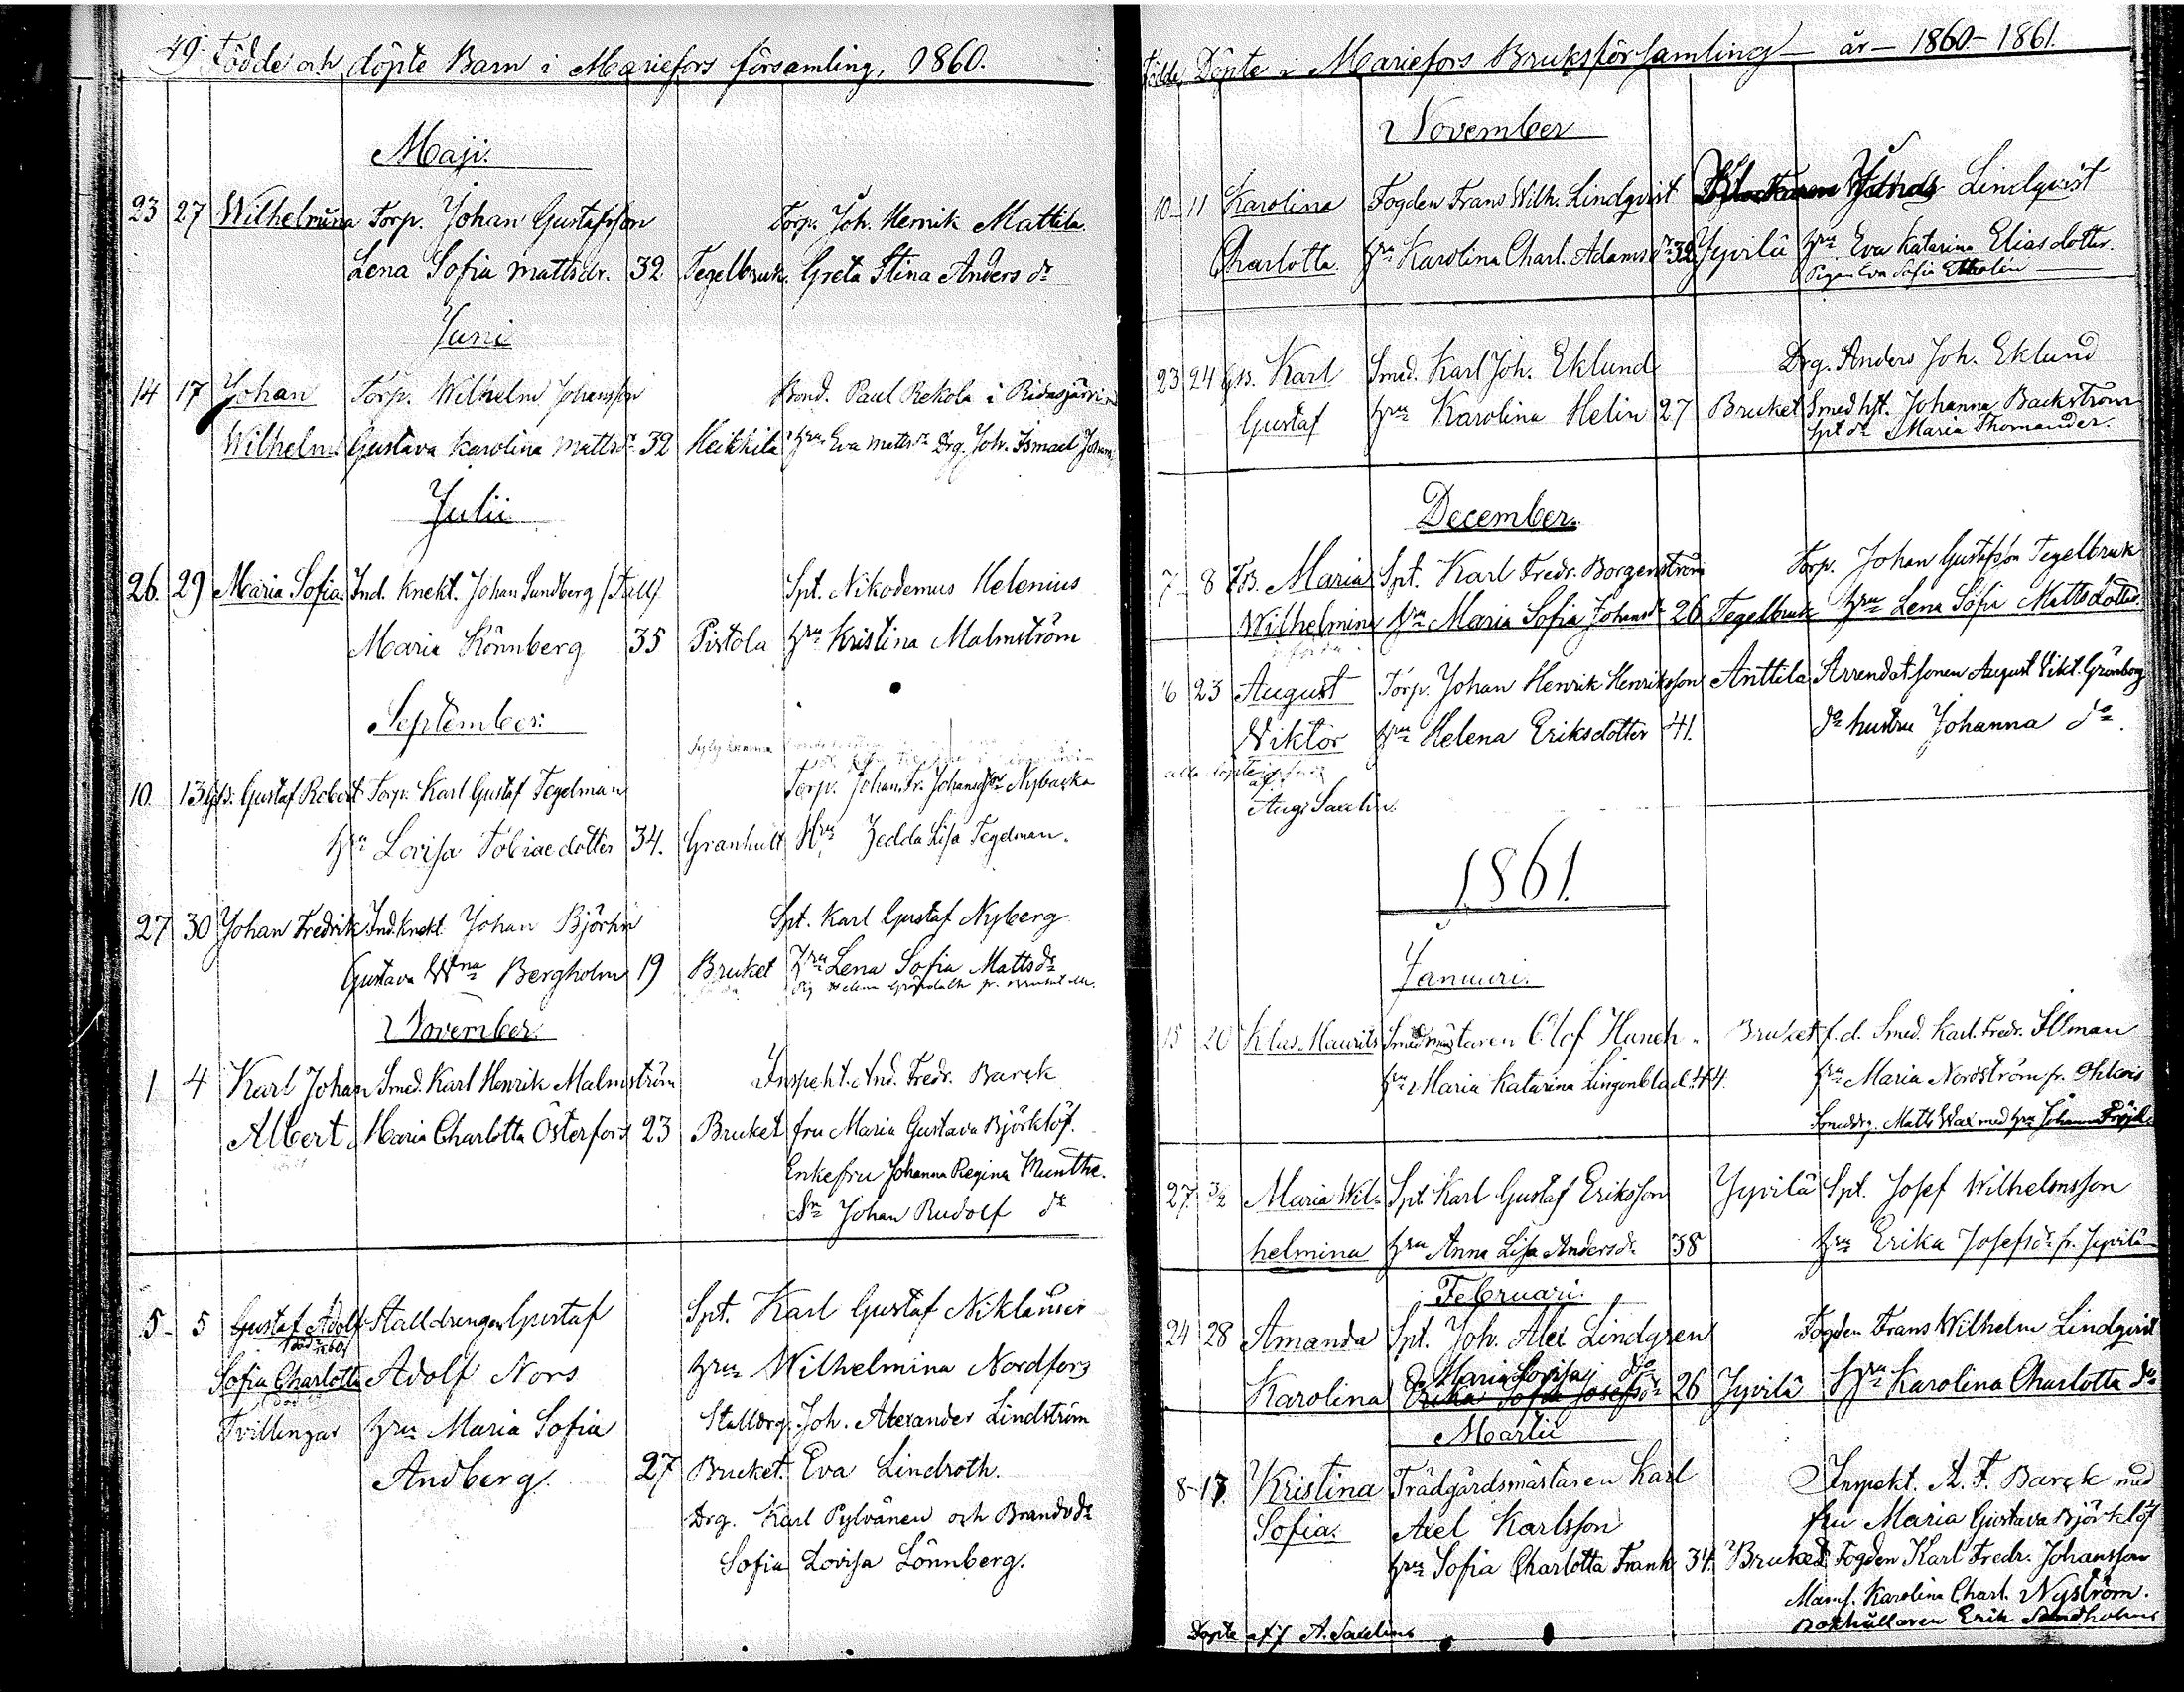 49. Födde och döpte Barn i Mariefors församling, 1860.
Maji.
23 27 Wilhelmina Torp. Johan Gustafsson Torp. Joh. Henrik Mattila
Lena Sofia Mattsdr. 32 Tegelbruk. Greta Stina Anders dr
Juni
14 17 Johan Torp. Wilhelm Johansson Bond. Paul Rekola i Ridasjärvi
Wilhelm Gustava Karolina Mattsdr 32 Heikkilä hru Eva Mattsdr Drg. Joh. Ismael
Julii
26. 29 Maria Sofia Ind. Knekt. Johan Sundberg (Tall) Spt. Nikodemus Helenius
Maria Lönnberg 35 Pistola hru Kristina Malmström
September:
10. 13 Gss. Gustaf Robert Torp. Karl Gustaf Tegelman Torp. Johan Fr. Johansson Nybacka
hru Lovisa Tobiaedotter 34. Granhult Hru Hedda Lisa Tegelman.
27 30 Johan Fredrik Ind. Knekt Johan Björhn Spt. Karl Gustaf Nyberg
Gustava Wna Bergholm 19 Bruket hru Lena Sofia Matts dr
November.
1 4 Karl Johan Smed. Karl Henrik Malmström Inspekt. And. Fredr. Barck
Albert. Maria Charlotta Österfors 23 Bruket fru Maria Gustava Björklöf.
Enkefru Johanna Regina Munthe.
Johan Rudolf do
5 - 5 Gustaf Adolf Stalldrengen Gustaf Spt. Karl Gustaf Niklander
Sofia Charlotta Adolf Nors hru Wilhelmina Nordfors
Tvillingar hru Maria Sofia Stalldrg. Joh. Alexander Lindström
Andberg. 27 Bruket. Eva Lindroth.
Drg. Karl Pylvänen och
Sofia Lovisa Lönnberg.
Födde Döpte i Mariefors Bruksförsamling år 1860-1861.
November
10 - 11 Karolina Fogden Frans Wilh. Lindqvist Lindqvist
Charlotta. hru Karolina Charl. Adamsdr 32 Jyvilä hru Eva Katarina Eliasdotter.
Pigan Eva Sofia
23 24 Gss. Karl Smed. Karl Joh. Eklund Drg. Anders Joh. Eklund
Gustaf hru Karolina Helin 27 Bruket Smed hst. Johanna Backström
Spt dr Maria Thomander.
December.
7 - 8 Maria Spt. Karl Fredr. Borgenström Torp. Johan Gustafsson Tegelbruk
Wilhelmina hru Maria Sofia Johansdr 26 Tegelbruk hru Lena Sofia Mattsdotter
6 23 August Torp. Johan Henrik Henriksson Anttila Arrendatsonen August Vikt. Grönberg
Viktor hru Helena Eriksdotter 41. do hustru Johanna do.
alla döpte
af
Aug. Saxelin.
1861.
Januari.
15 20 Klas Maurits Smedmästaren Olof Hunch. Bruket f.d. Smed. Karl Fredr.
hru Maria Katarina Lingonblad 44. hru Maria Nordström fr.
Smeddrg. Matts Wax med hru Johanna
27. 3/2 Maria Wil- Spt Karl Gustaf Eriksson Jyvilä Spt. Josef Wilhelmsson
helmina hru Anna Lisa Andersdr 38 hru Erika Josefsdr fr. Jyvilä
Februari.
24 28 Amanda Spt. Joh. Alex Lindgren Fogden Frans Wilhelm Lindqvist
Maria Lovisa do
Karolina Erika Sofia Josefsdr 26 Jyvilä Hru Karolina Charlotta do
Martii
8 - 17. Kristina Trädgårdsmästaren Karl Inspekt. A. F. Barck med
Sofia. Axel Karlsson fru Maria Gustava Björklöf
hru Sofia Charlotta Frank 34. Bruket. Fogden Karl Fredr. Johansson
Mams. Karolina Charl. Nyström.
Bokhållaren Erik Sandholm
Döpte af A. Saxelin